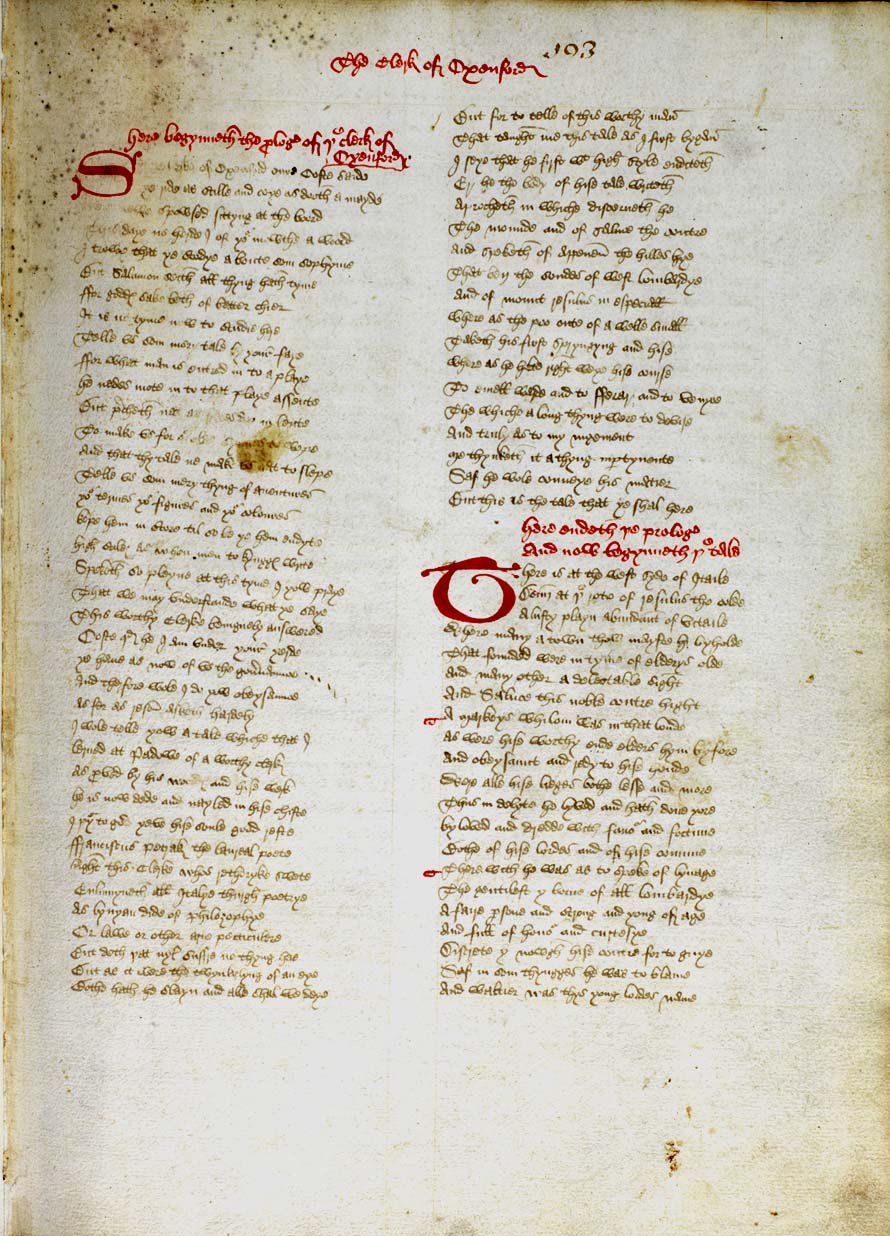 The Clerk of Oxenford
103
here begynneth the prologe of yͤ clerk of
Oxenford
S Clerke of Oxenford oure Oste saide
ye ride as stille and coye as doth a mayde
spowsed sittyng at the bord
This daye ne herde I of yoͬ mowthe a word
I trowe that ye stodye aboute som sophyme
But Salamon seith all thyng hath tyme
ffor goddes sake beth of better chier
It is no tyme now to studie hier
Telle vs som mery tale by youre faye
ffor what man is entred in to a playe
he nedes mote in to that playe assente
But precheth not as in lente
To make vs for wepe
And that thy tale ne make vs not to slepe
Telle vs som mery thyng of auentures
yoͬ termes yoͬ figures and yoͬ coloures
kepe hem in store til so be ye hem endyte
high stiley as when men to kyngges wryte
Speketh so playne at this tyme I yow praye
That we may vnderstande what ye saye
This worthy Clerke benignely answered
Oste quod he I am vnder youre yerde
ye haue as now of vs the gouernance
And therfore wole I do yow obeysance
as fer as reson asketh hardely
I wole telle yow a tale whiche that I
lerned at Padowe of a worthy clerk
as preved by his wordes and hise werk
he is now dede and nayled in his chiste
I pray to god yeve his soule good reste
ffranciscus petrak the laureal poete
hight this Clerke whos rethoryke swete
Enlumyneth all Itaylye thurgh poetrye
As lynyan dide of philozophye
Or lawe or other arte perticulere
But deth that nyl suffre no thyng here
But as it were the twynkelyng of an eye
Bothe hath he slayn and alle shal we deye
But for to telle of this worthy man
That taught me this tale as I first bygan
I seye that he first with high style enditeth
Er he the body of hise tale writeth
A proheth in whiche discerneth he
The mounde and of Saluce the contre
And speketh of Appenen the hilles hye
That ben the boundes of west lombardye
And of mount vesulus in especiall
where as the poo oute of a welle small
Taketh his first spryngyng and hise
where as he hette right wexe hise course
To emell warde and to fferar and to venyse
The whiche a long thyng were to devise
And truly as to my iugement
Me thynketh it a thyng inpertynente
Saf he wole conveye his matier
But this is the tale that ye shal here
here endeth ye prologe
And now begynneth yͤ tale
There is at the west syde of Itaile
Doun at yͤ rote of vesulus the colde
A lusty playn abundant of vitaile
where many a town thow mayste by holde
That founded were in tyme of elderys olde
And many other a delectable sight
And Saluce this noble contre hight
A markeys whilom was in that londe
as were hise worthy elders hym by fore
And obeysant and redy to hise honde
Were alle hise lieges bothe lesse and more
Thus in delyte he lyved and hath done yore
by loved and dredde with favoͬ and fortune
Bothe of hise lordes and of hise comune
Ther with he was as to speke of lynage
The gentilest y borne of all lombardye
A faire persone and strong and yong of age
And full of honoͬ and curtesye
Discrete y nowgh hise contre for to guye
Saf in som thynges he was to blame
And waltier was thys yong lordes name